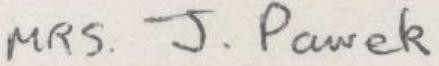 MRS. J. Pawek